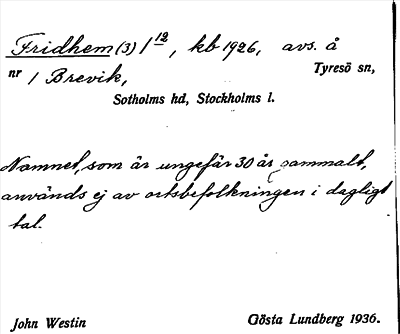 Fridhem (3) 1 12, kb 1926, avs. å
nr 1 Brevik, Tyresö sn,
Sotholms hd, Stockholms l.
Namnet, som är ungefär 30 år gammalt,
används ej av ortsbefolkningen i dagligt
tal.
John Westin Gösta Lundberg 1936.